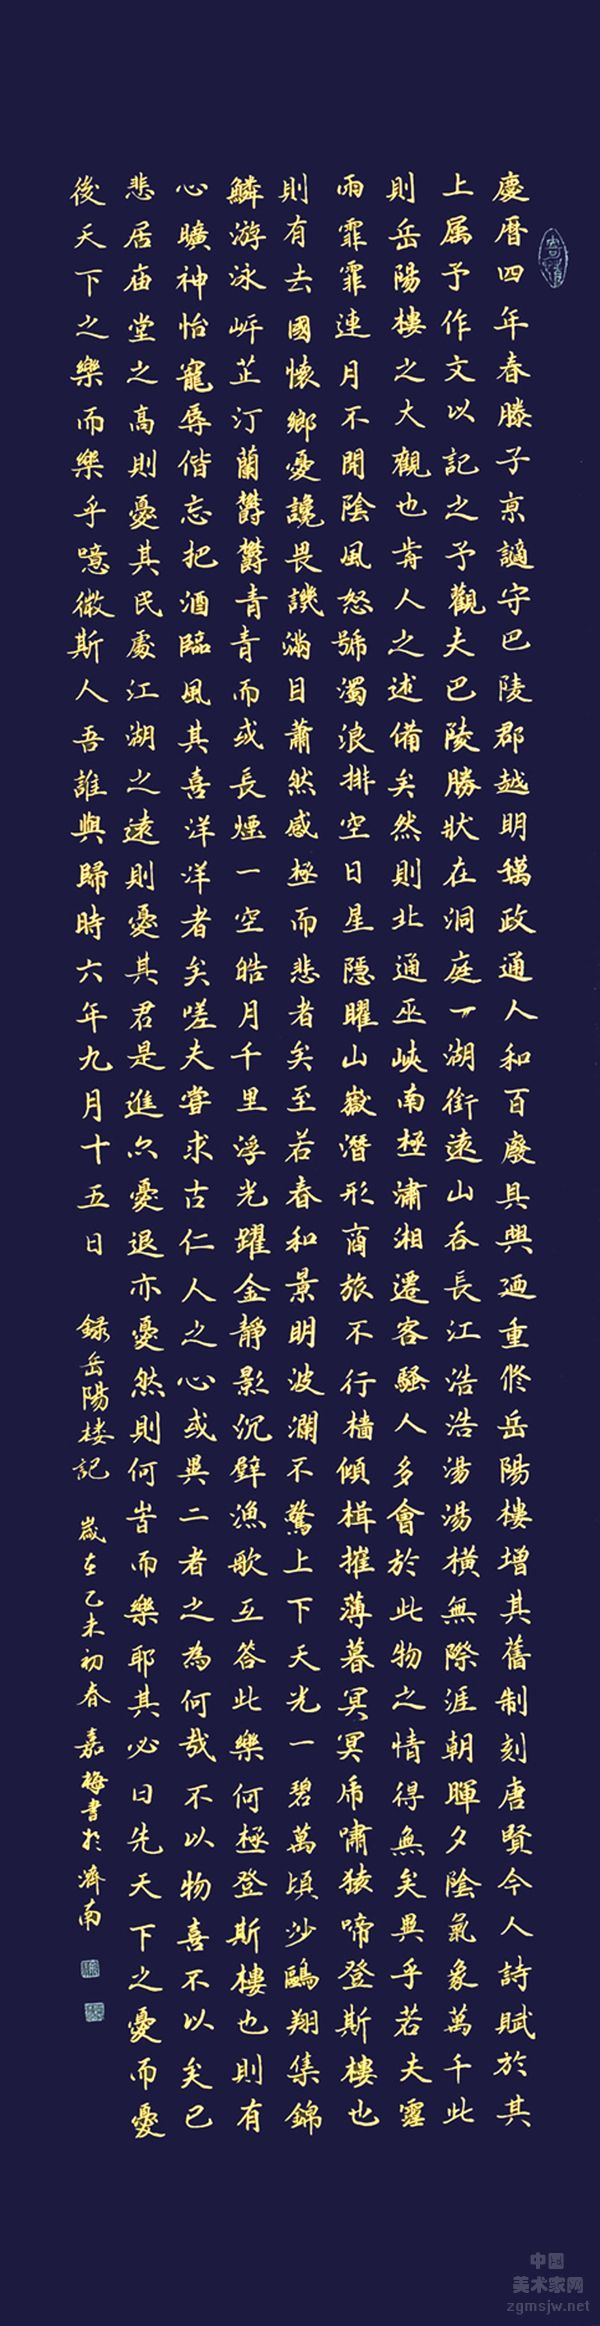 寄情
慶曆四年春滕子京謫守巴陵郡越明䄵政通人和百廢具興廼重修岳陽樓增其舊制刻唐賢今人詩賦於其
上属予作文以記之予觀夫巴陵勝狀在洞庭一湖銜遠山吞長江浩浩湯湯橫無際涯朝暉夕陰氣象萬千此
則岳陽樓之大觀也歬人之述備矣然則北通巫峽南極瀟湘遷客騷人多會於此物之情得無矣異乎若夫霪
雨霏霏連月不開陰風怒號濁浪排空日星隱曜山嶽潛形商旅不行檣傾楫摧薄暮冥冥虎嘯猿啼登斯樓也
則有去國懷鄉憂讒畏譏滿目蕭然感極而悲者矣至若春和景明波瀾不驚上下天光一碧萬頃沙鷗翔集錦
鱗游泳岸芷汀蘭欝欝青青而或長煙一空皓月千里浮光躍金靜影沉璧漁歌互答此樂何極登斯樓也則有
心曠神怡寵辱偕忘把酒臨風其喜洋洋者矣嗟夫嘗求古仁人之心或異二者之為何哉不以物喜不以矣己
悲居庙堂之高則憂其民處江湖之遠則憂其君是進亦憂退亦憂然則何峕而樂耶其必曰先天下之憂而憂
後天下之樂而樂乎噫微斯人吾誰與歸時六年九月十五日 録岳陽楼記 歲在乙未初春嘉梅書於濟南
中国
美术家网
zgmsjw.net